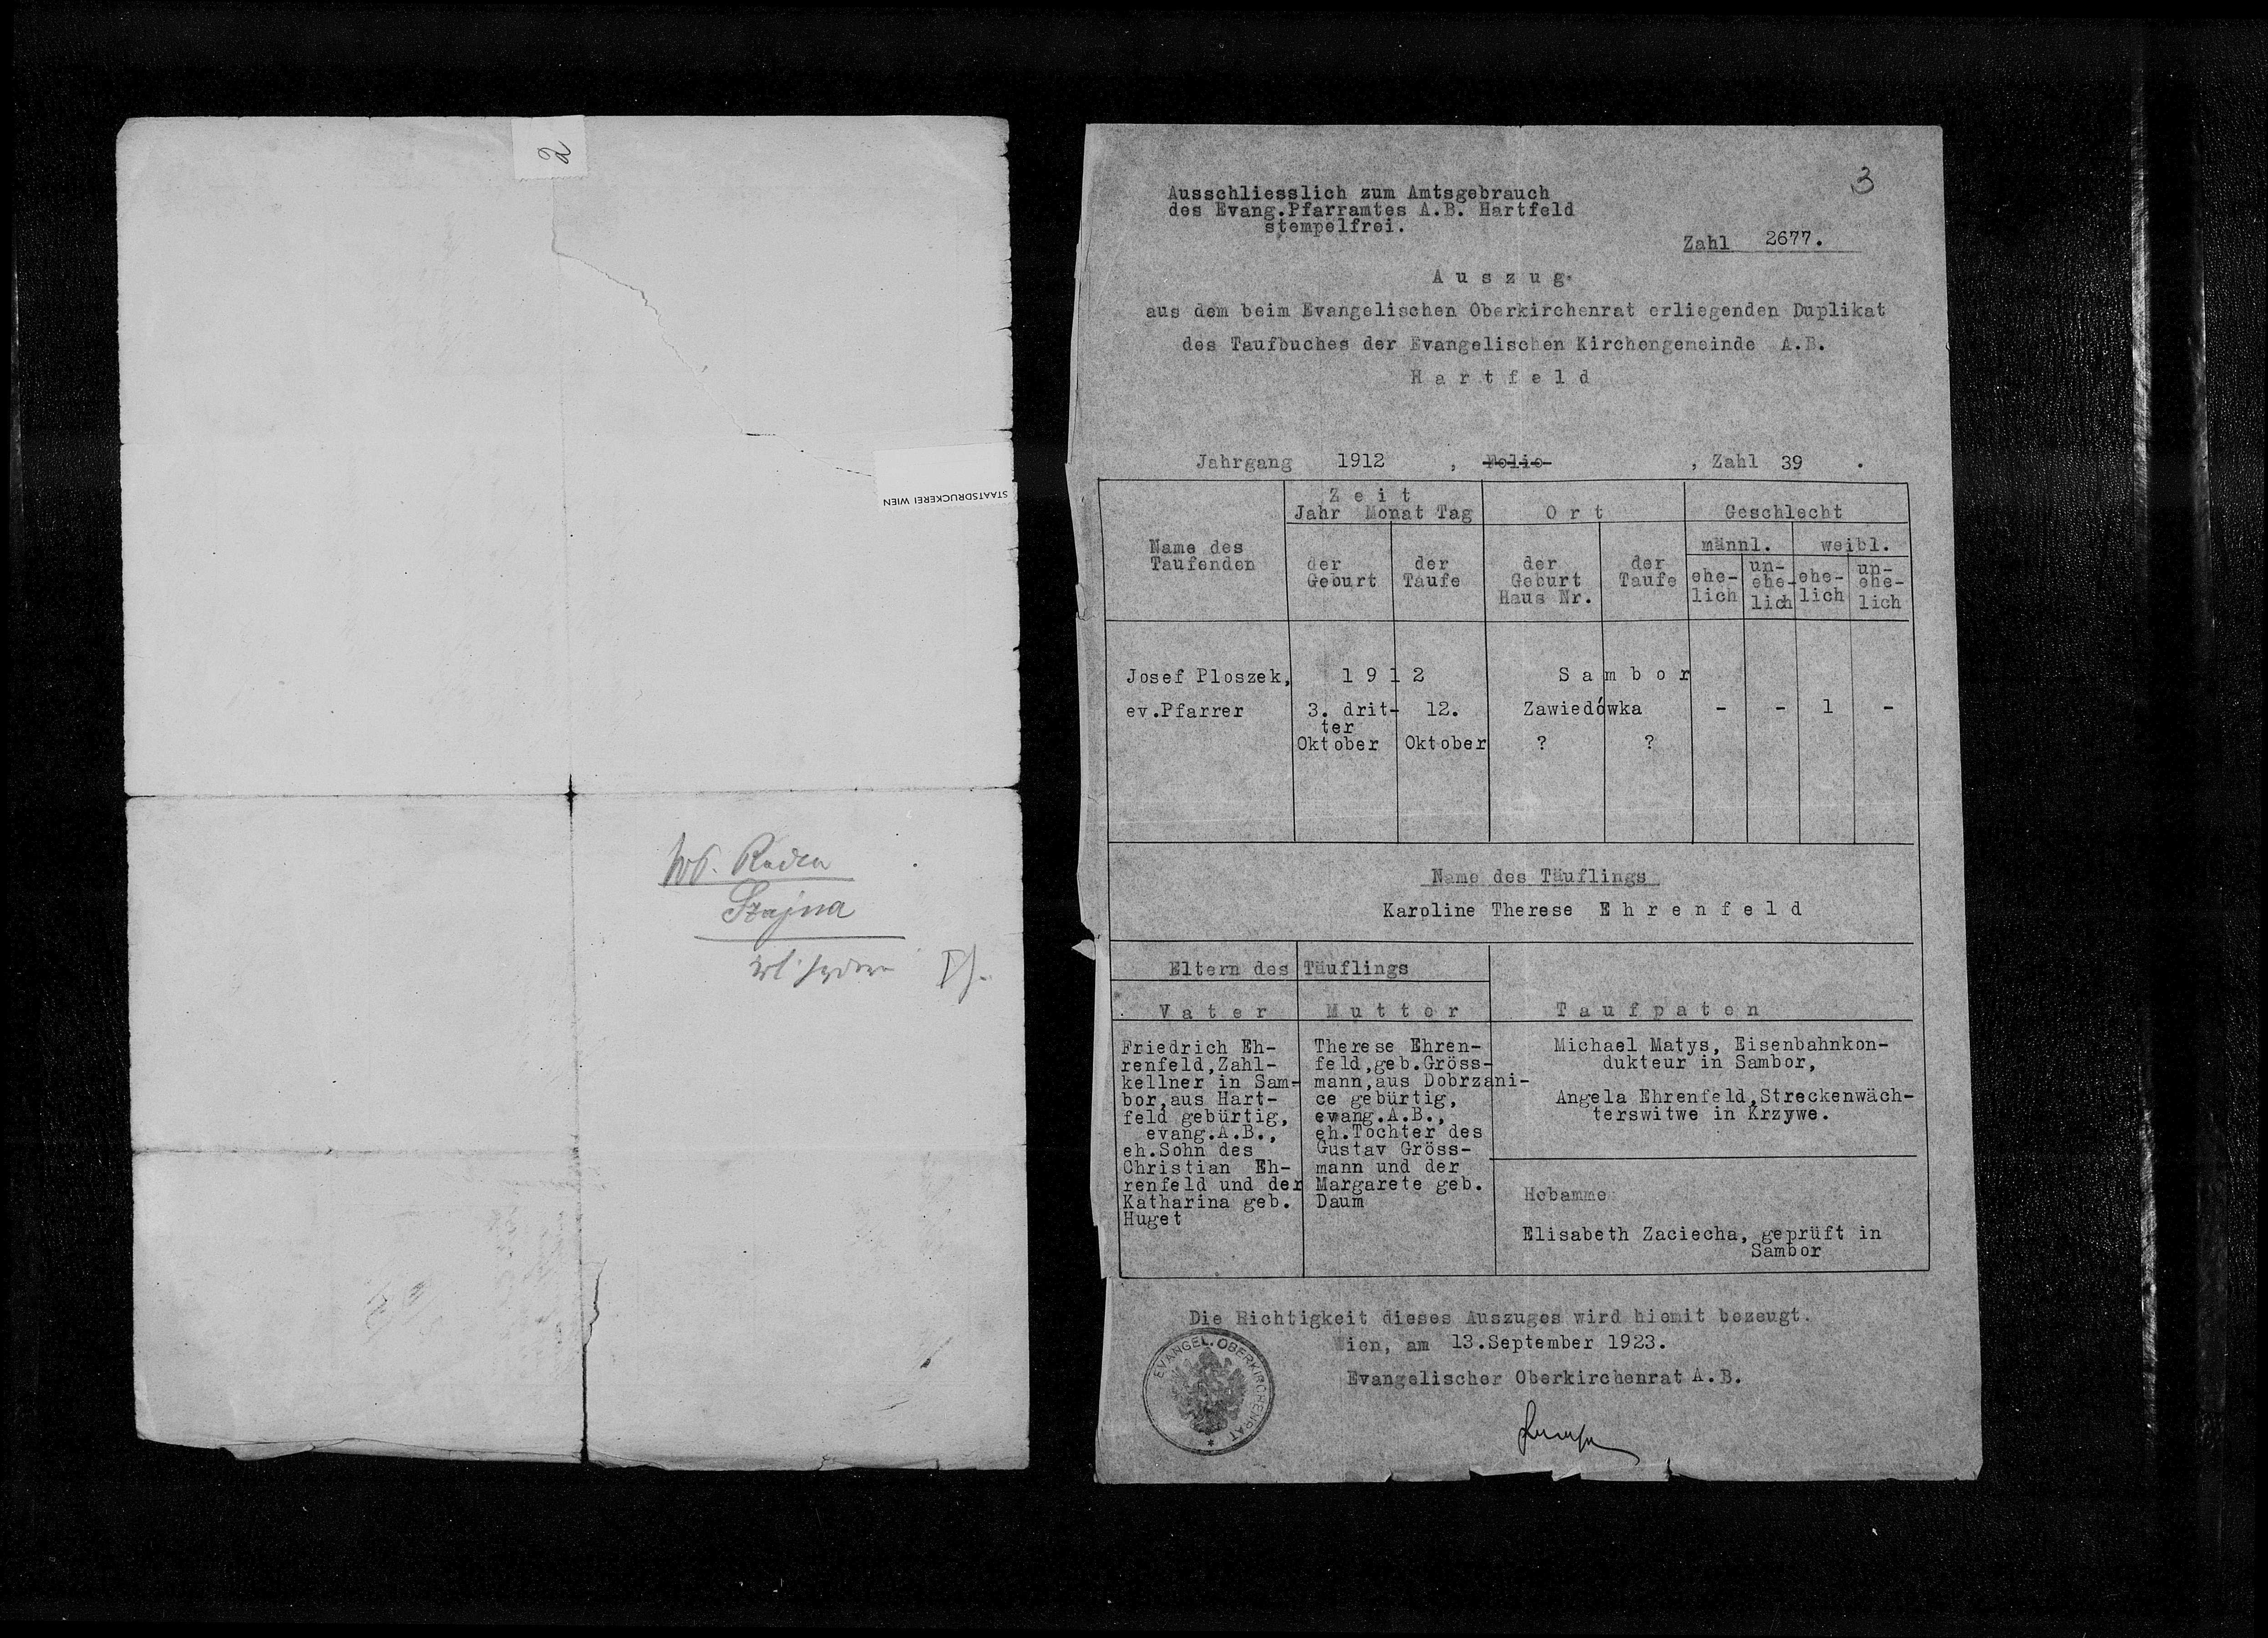 2
STAATSDRUCKEREI WIEN
Szajna
3
Ausschliesslich zum Amtsgebrauch
des Evang.Pfarramtes A.B. Hartfeld
stempelfrei.
Zahl 2677.
Auszug
aus dem beim Evangelischen Oberkirchenrat erliegenden Duplikat
des Taufbuches der Evangelischen Kirchengemeinde A.B.
Hartfeld
Jahrgang 1912 , Folio , Zahl 39 .
Name des
Taufenden
Zeit
Jahr Monat Tag
der
Geburt
der
Taufe
Ort
der
Geburt
Haus Nr.
der
Taufe
Geschlecht
männl. weibl.
ehe-
lich
un-
ehe-
lich
ehe-
lich
un-
ehe-
lich
Josef Ploszek,
ev.Pfarrer
1912
3. drit-
ter
Oktober
12.
Oktober
Sambor
Zawiedówka
? ?
- - 1 -
Name des Täuflings
Karoline Therese Ehrenfeld
Eltern des Täuflings
Vater
Friedrich Eh-
renfeld,Zahl-
kellner in Sam-
bor,aus Hart-
feld gebürtig,
evang.A.B.,
eh.Sohn des
Christian Eh-
renfeld und der
Katharina geb.
Huget
Mutter
Therese Ehren-
feld,geb.Gröss-
mann,aus Dobrzani-
ce gebürtig,
evang.A.B.,
eh.Tochter des
Gustav Gröss-
mann und der
Margarete geb.
Daum
Taufpaten
Michael Matys, Eisenbahnkon-
dukteur in Sambor,
Angela Ehrenfeld,Streckenwäch-
terswitwe in Krzywe.
Hebamme
Elisabeth Zaciecha, geprüft in
Sambor
Die Richtigkeit dieses Auszuges wird hiemit bezeugt.
Wien, am 13.September 1923.
Evangelischer Oberkirchenrat A.B.
EVANGEL. OBERKIRCHENRAT